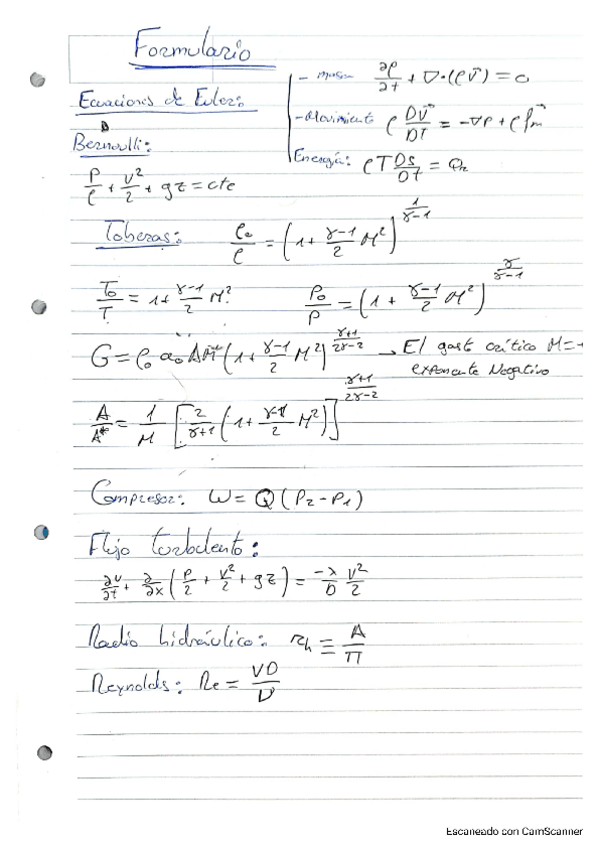 Formulario
Ecuaciones de Euler:
- masa ∂ρ/∂t + ∇·(ρv⃗) = 0
- Movimiento ρ Dv⃗/Dt = -∇P + ρf⃗m
Energía: ρT Ds/Dt = Qr
Bernoulli:
P/ρ + v²/2 + gz = cte
Toberas: ρ₀/ρ = (1 + (γ-1)/2 M²)^(1/(γ-1))
T₀/T = 1 + (γ-1)/2 M² P₀/P = (1 + (γ-1)/2 M²)^(γ/(γ-1))
G = ρ₀ a₀ A M (1 + (γ-1)/2 M²)^((γ+1)/(2γ-2)) → El gasto crítico M=1
exponente Negativo
A/A* = 1/M [2/(γ+1) (1 + (γ-1)/2 M²)]^((γ+1)/(2γ-2))
Compresor: W = Q(P₂ - P₁)
Flujo turbulento:
∂v/∂t + ∂/∂x (P/2 + v²/2 + gz) = -λ/D v²/2
Radio hidráulico: rh ≡ A/Π
Reynolds: Re = VD/ν
Escaneado con CamScanner